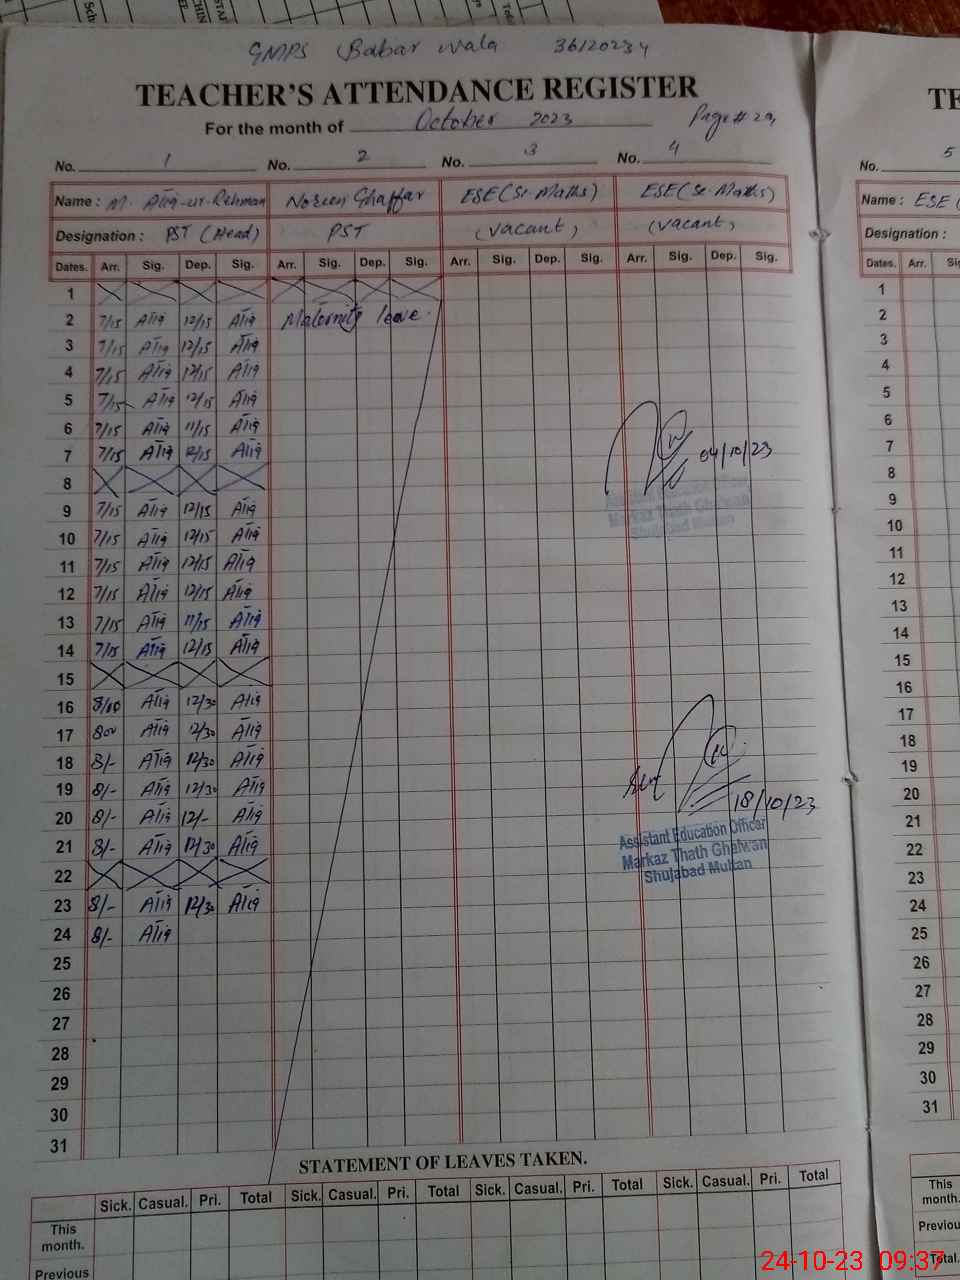 GMPS Babar wala 36120234
TEACHER'S ATTENDANCE REGISTER
For the month of October 2023 Page # 29
No. 1 No. 2 No. 3 No. 4
Name : M. Atiq-ur-Rehman Noreen Ghaffar ESE (Sc-Maths) ESE (Sc-Maths)
Designation : PST (Head) PST (Vacant) (Vacant)
Dates. Arr. Sig. Dep. Sig. Arr. Sig. Dep. Sig. Arr. Sig. Dep. Sig. Arr. Sig. Dep. Sig.
1
2 7/15 Atiq 12/15 Atiq Maternity leave.
3 7/15 Atiq 12/15 Atiq
4 7/15 Atiq 12/15 Atiq
5 7/15 Atiq 12/15 Atiq
6 7/15 Atiq 11/15 Atiq
7 7/15 Atiq 12/15 Atiq 04/10/23
8
Assistant Education Officer
9 7/15 Atiq 12/15 Atiq Markaz Thath Ghalwan
Shujabad Multan
10 7/15 Atiq 12/15 Atiq
11 7/15 Atiq 12/15 Atiq
12 7/15 Atiq 12/15 Atiq
13 7/15 Atiq 11/15 Atiq
14 7/15 Atiq 12/15 Atiq
15
16 8/00 Atiq 12/30 Atiq
17 800 Atiq 12/30 Atiq
18 8/- Atiq 12/30 Atiq
19 8/- Atiq 12/30 Atiq
20 8/- Atiq 12/- Atiq 18/10/23
21 8/- Atiq 12/30 Atiq Assistant Education Officer
Markaz Thath Ghalwan
22 Shujabad Multan
23 8/- Atiq 12/30 Atiq
24 8/- Atiq
25
26
27
28
29
30
31
STATEMENT OF LEAVES TAKEN.
Sick. Casual. Pri. Total Sick. Casual. Pri. Total Sick. Casual. Pri. Total Sick. Casual. Pri. Total
This month.
Previous
TE
No. 5
Name : ESE (
Designation :
Dates. Arr.
1
2
3
4
5
6
7
8
9
10
11
12
13
14
15
16
17
18
19
20
21
22
23
24
25
26
27
28
29
30
31
This month.
Previous
Total.
24-10-23 09:37